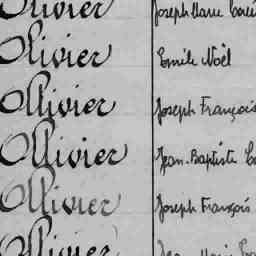 Olivier Joseph Marie
Olivier Emile Noël
Ollivier Joseph François
Ollivier Jean-Baptiste
Ollivier Joseph François
Ollivier